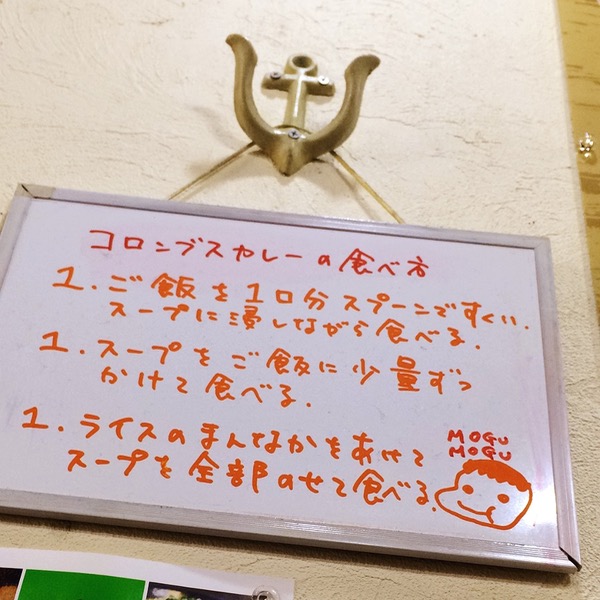 コロンブスカレーの食べ方
1.ご飯を1口分スプーンですくい.
スープに浸しながら食べる.
1.スープをご飯に少量ずつ
かけて食べる.
1.ライスのまんなかをあけて
スープを全部のせて食べる.
MOGU
MOGU